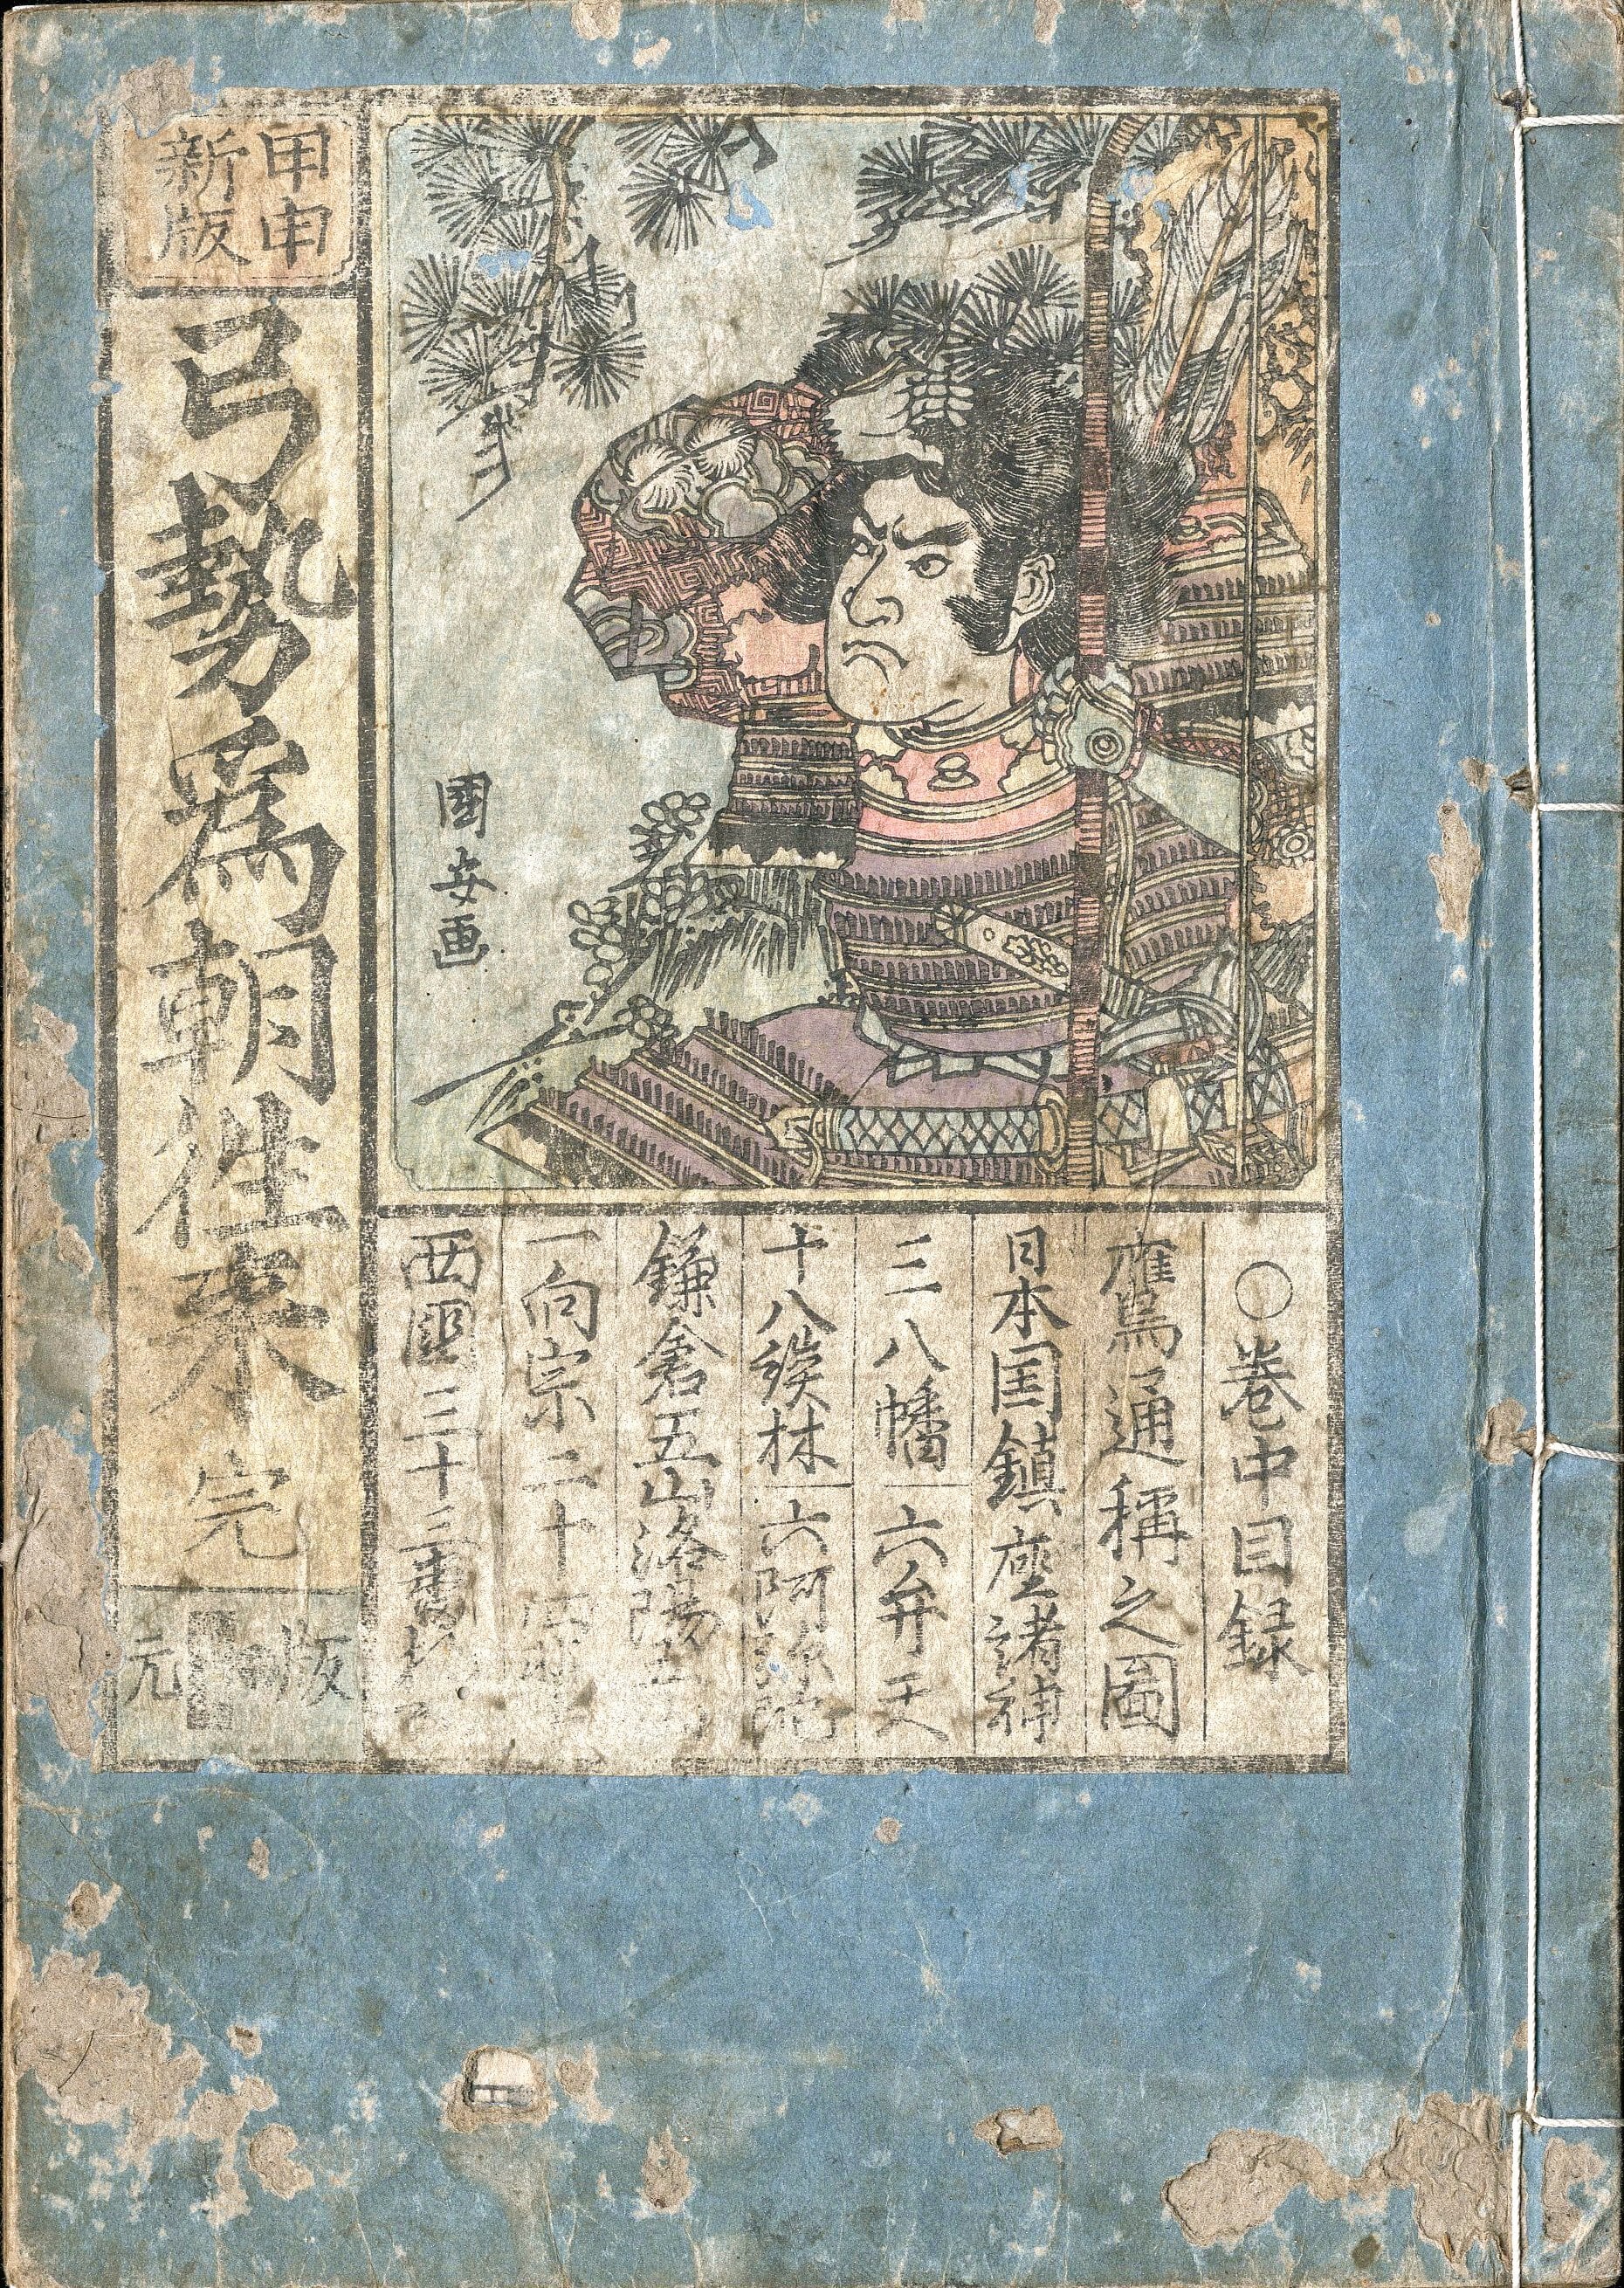 甲申
新版
弓勢為朝徃来 完
版元
國安画
〇巻中目録
鷹通稱之圖
日本国鎮座諸補
三八幡 六弁天
十八談林 六阿弥陀
鎌倉五山洛陽五
一向宗二十四輩
西國三十三